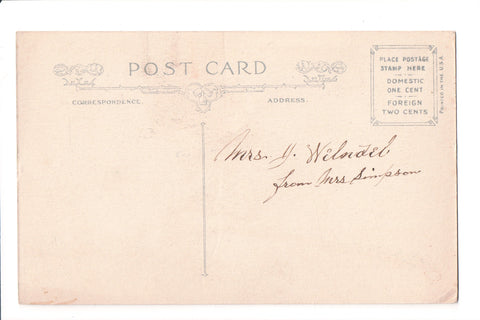 POST CARD
CORRESPONDENCE.
ADDRESS.
PLACE POSTAGE
STAMP HERE
DOMESTIC
ONE CENT
FOREIGN
TWO CENTS
PRINTED IN THE U.S.A.
Mrs.
from Mrs Simpson